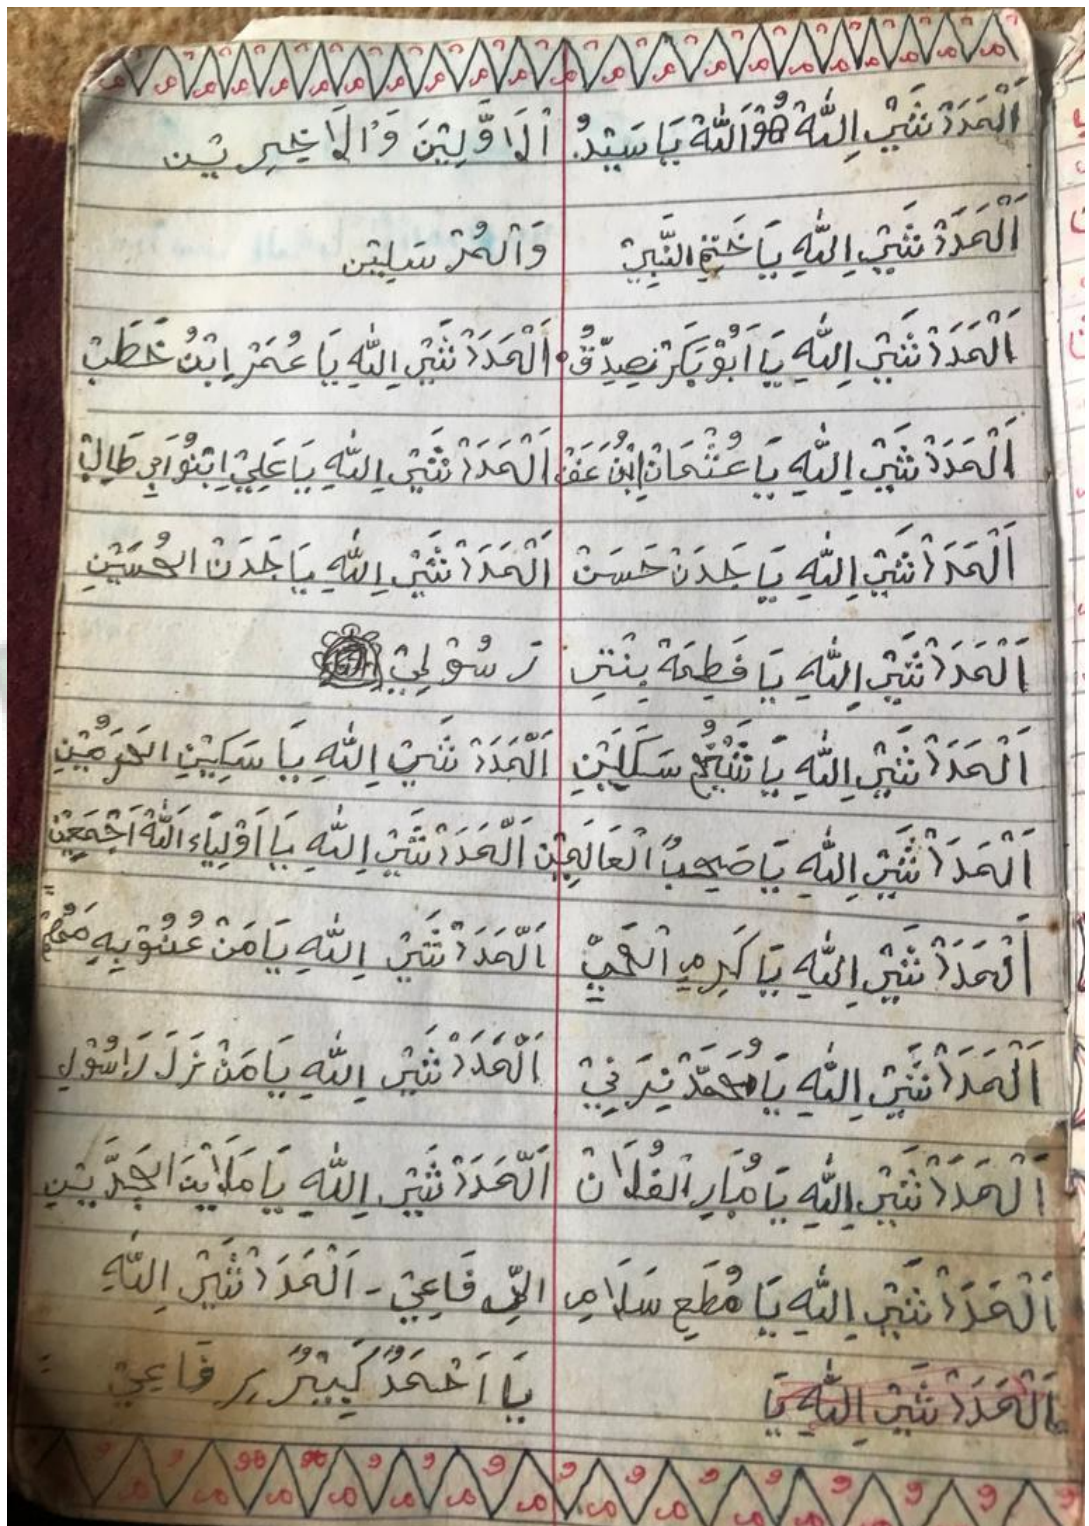 اَلْمَدَدْ شَيْئِ اِللّٰهْ هُوَ اللّٰهْ يَا سَيِّدُ اَلْاَوَّلِيْنَ وَالْاَخِرِيْن
اَلْمَدَدْ شَيْئِ اِللّٰهِ يَا خَتَمِ النَّبِيْ وَالْمُرْسَلِيْن
اَلْمَدَدْ شَيْئِ اِللّٰهِ يَا اَبُوْ بَكَرْ نصِدِّقُ اَلْمَدَدْ شَيْئِ اِللّٰهِ يَا عُمَرْ اِبْنُ خَطَبْ
اَلْمَدَدْ شَيْئِ اِللّٰهِ يَا عُثْمَانْ اِبْنُ عَفَنْ اَلْمَدَدْ شَيْئِ اِللّٰهِ يَا عَلِيْ اِبْنُوْ اَبِي طَالِبْ
اَلْمَدَدْ شَيْئِ اِللّٰهِ يَا جَدَنْ حَسَنْ اَلْمَدَدْ شَيْئِ اِللّٰهِ يَا جَدَنْ الحُسَيْنِ
اَلْمَدَدْ شَيْئِ اِللّٰهِ يَا فَطِمَة بِنْتِ رَسُوْلِيْ
اَلْمَدَدْ شَيْئِ اِللّٰهِ يَا سَكَلَيْنِ اَلْمَدَدْ شَيْئِ اِللّٰهِ يَا سَكِيْنِ الحَرَمَيْنِ
اَلْمَدَدْ شَيْئِ اِللّٰهِ يَا صَحِبُ الْعَالَمِيْن اَلْمَدَدْ شَيْئِ اِللّٰهِ يَا اَوْلِيَاء اَللّٰهْ اَجْمَعِيْن
اَلْمَدَدْ شَيْئِ اِللّٰهِ يَا كَرِمِ الْحَيِّ اَلْمَدَدْ شَيْئِ اِللّٰهِ يَا مَنْ بِهِ
اَلْمَدَدْ شَيْئِ اِللّٰهِ يَا مُحَمَّدْ اَلْمَدَدْ شَيْئِ اِللّٰهِ يَا مَنْ نَزَلَ رَاسُوْلِ
اَلْمَدَدْ شَيْئِ اِللّٰهِ يَا الْفُلَانْ اَلْمَدَدْ شَيْئِ اِللّٰهِ يَا
اَلْمَدَدْ شَيْئِ اِللّٰهِ يَا مُطَعِ سَلَامِ فَاعِيْ - اَلْمَدَدْ شَيْئِ اِللّٰهِ
اَلْمَدَدْ شَيْئِ اِللّٰهِ يَا يَا اَحْمَدُ كَبِيْرُ رِ فَاعِيْ